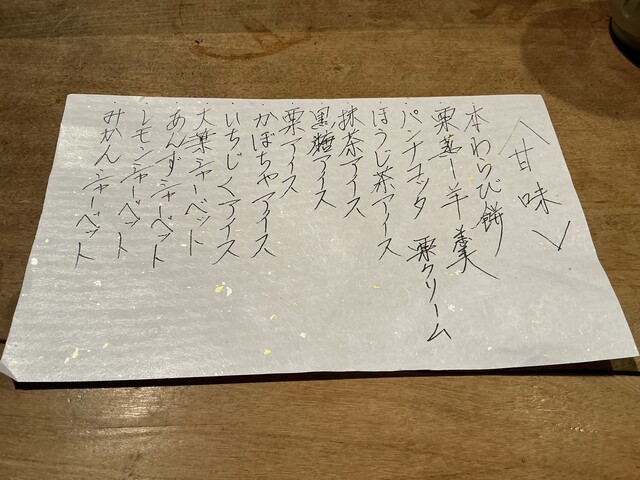 〈甘味〉
・本わらび餅
・栗蒸し羊羹
・パンナコッタ 栗クリーム
・ほうじ茶アイス
・抹茶アイス
・黒糖アイス
・栗アイス
・かぼちゃアイス
・いちじくアイス
・大葉シャーベット
・あんずシャーベット
・レモンシャーベット
・みかんシャーベット